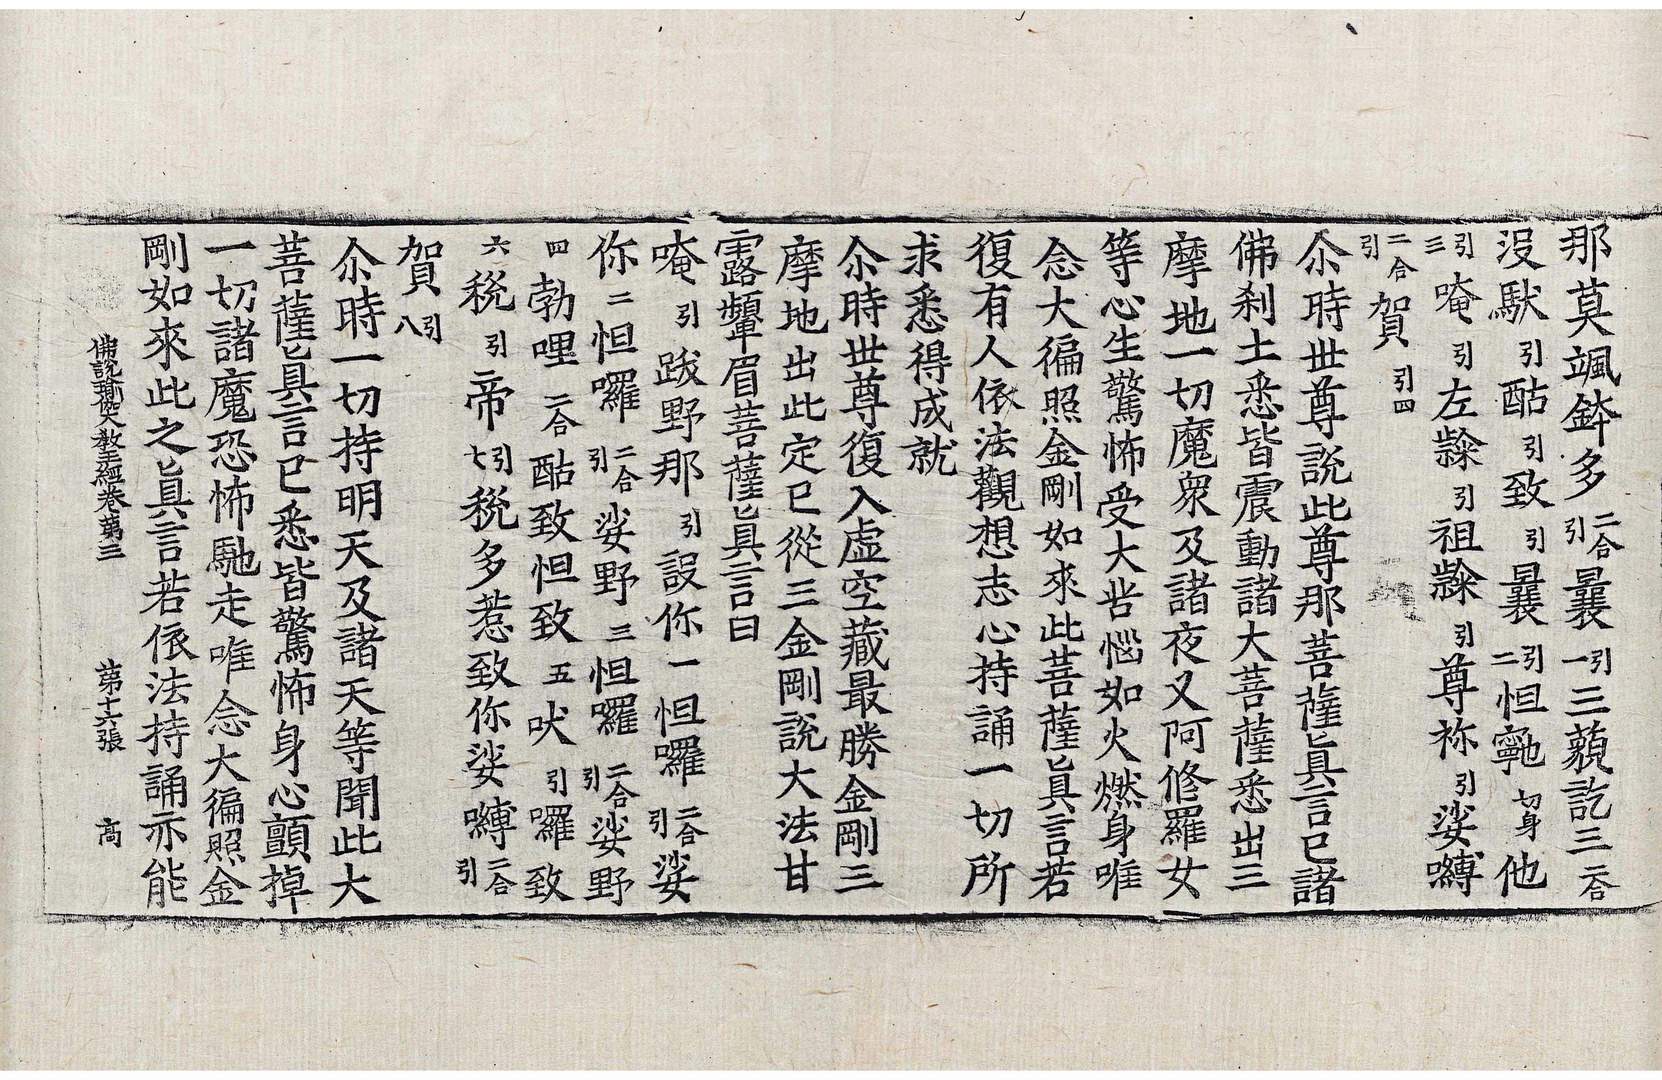 那莫颯鉢多二合引曩引一三藐訖三二合
没馱引酤引致引曩引二怛寧也切身他
引三唵引左㘑引祖㘑引尊祢引娑嚩
二合引賀引四
尒時世尊說此尊那菩薩眞言已諸
佛刹土悉皆震動諸大菩薩悉出三
摩地一切魔衆及諸夜叉阿修羅女
等心生驚怖受大苦惱如火燃身唯
念大徧照金剛如來此菩薩眞言若
復有人依法觀想志心持誦一切所
求悉得成就
尒時世尊復入虛空藏最勝金剛三
摩地出此定已從三金剛說大法甘
露顰眉菩薩眞言曰
唵引跋野那引設你一怛囉二合引娑
你二怛囉二合引娑野三怛囉二合引娑野
四勃哩二合酤致怛致五吠引囉致
六稅引帝引七稅多惹致你娑嚩二合引
賀引八
尒時一切持明天及諸天等聞此大
菩薩眞言已悉皆驚怖身心顫掉
一切諸魔恐怖馳走唯念大徧照金
剛如來此之眞言若依法持誦亦能
佛說瑜伽大敎王經卷第三 第十六張 高